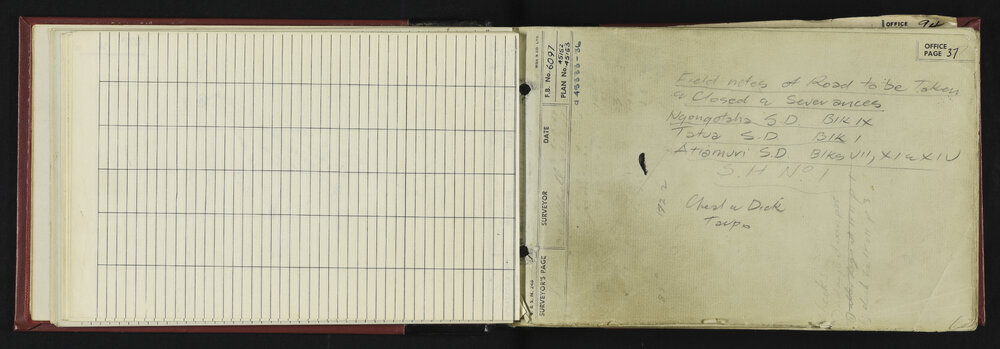 OFFICE 94
OFFICE
PAGE 37
F.B. No. 6097
45152
PLAN No. 45153
DATE
SURVEYOR
SURVEYOR'S PAGE
Field notes of Road to be Taken
& Closed & Severances
Ngongotaha S.D. Blk IX
Tatua S.D Blk I
Atiamuri S.D Blks VII, XI & XIV
S.H No. 1
Cheal & Dick
Taupo